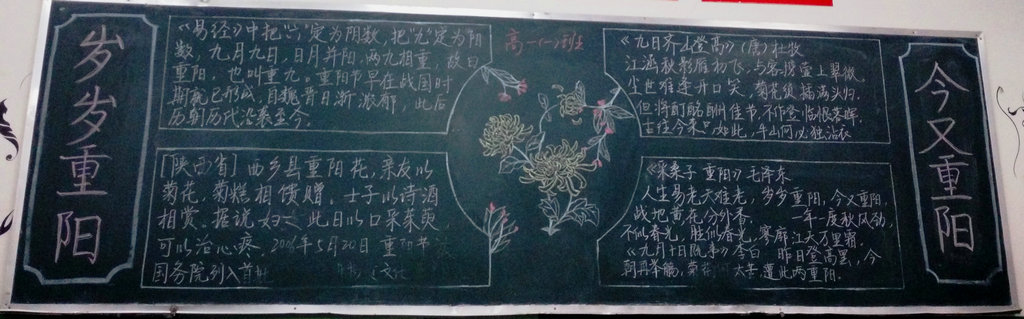 岁岁重阳
《易经》中把"六"定为阴数,把"九"定为阳
数,九月九日,日月并阳,两九相重,故曰
重阳,也叫重九。重阳节早在战国时
期就已形成,自魏晋日渐浓郁,此后
历朝历代沿袭至今.
[陕西省]西乡县重阳花,亲友以
菊花,菊糕相馈赠,士子以诗酒
相赏.据说妇 此日以口采茱萸,
可以治心疼.2006年5月20日重阳节
国务院列入首批 文化
高一(一)班
《九日齐山登高》(唐)杜牧
江涵秋影雁初飞,与客携壶上翠微,
尘世难逢开口笑,菊花须插满头归.
但将酩酊酬佳节,不作登临恨落晖.
古往今来 如此,牛山何必独沾衣
《采桑子 重阳》毛泽东
人生易老天难老,岁岁重阳,今又重阳,
战地黄花分外香. 一年一度秋风劲,
不似春光,胜似春光,寥廓江天万里霜.
《九月十日即事》李白 昨日登高罢,今
朝再举觞,菊花 太苦,遭此两重阳.
今又重阳